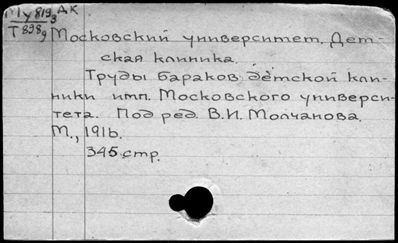 Му819з АК
Т898д
Московский университет. Дет-
ская клиника.
Труды бараков детской кли-
ники имп. Московского универси-
тета. Под ред. В.И. Молчанова.
М., 1916.
345 стр.